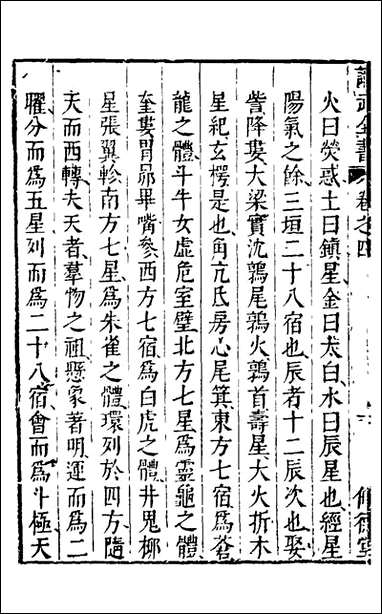 全書 卷之四
火曰熒惑土曰鎮星金曰太白水曰辰星也經星
陽氣之餘三垣二十八宿也辰者十二辰次也娶
訾降婁大梁實沈鶉尾鶉火鶉首壽星大火折木
星紀玄枵是也角亢氐房心尾箕東方七宿爲蒼
龍之體斗牛女虛危室壁北方七星爲靈龜之體
奎婁胃昴畢嘴參西方七宿爲白虎之體井鬼柳
星張翼軫南方七星爲朱雀之體環列於四方隨
天而西轉夫天者羣物之祖懸象著明運而爲二
曜分而爲五星列而爲二十八宿會而爲斗極天